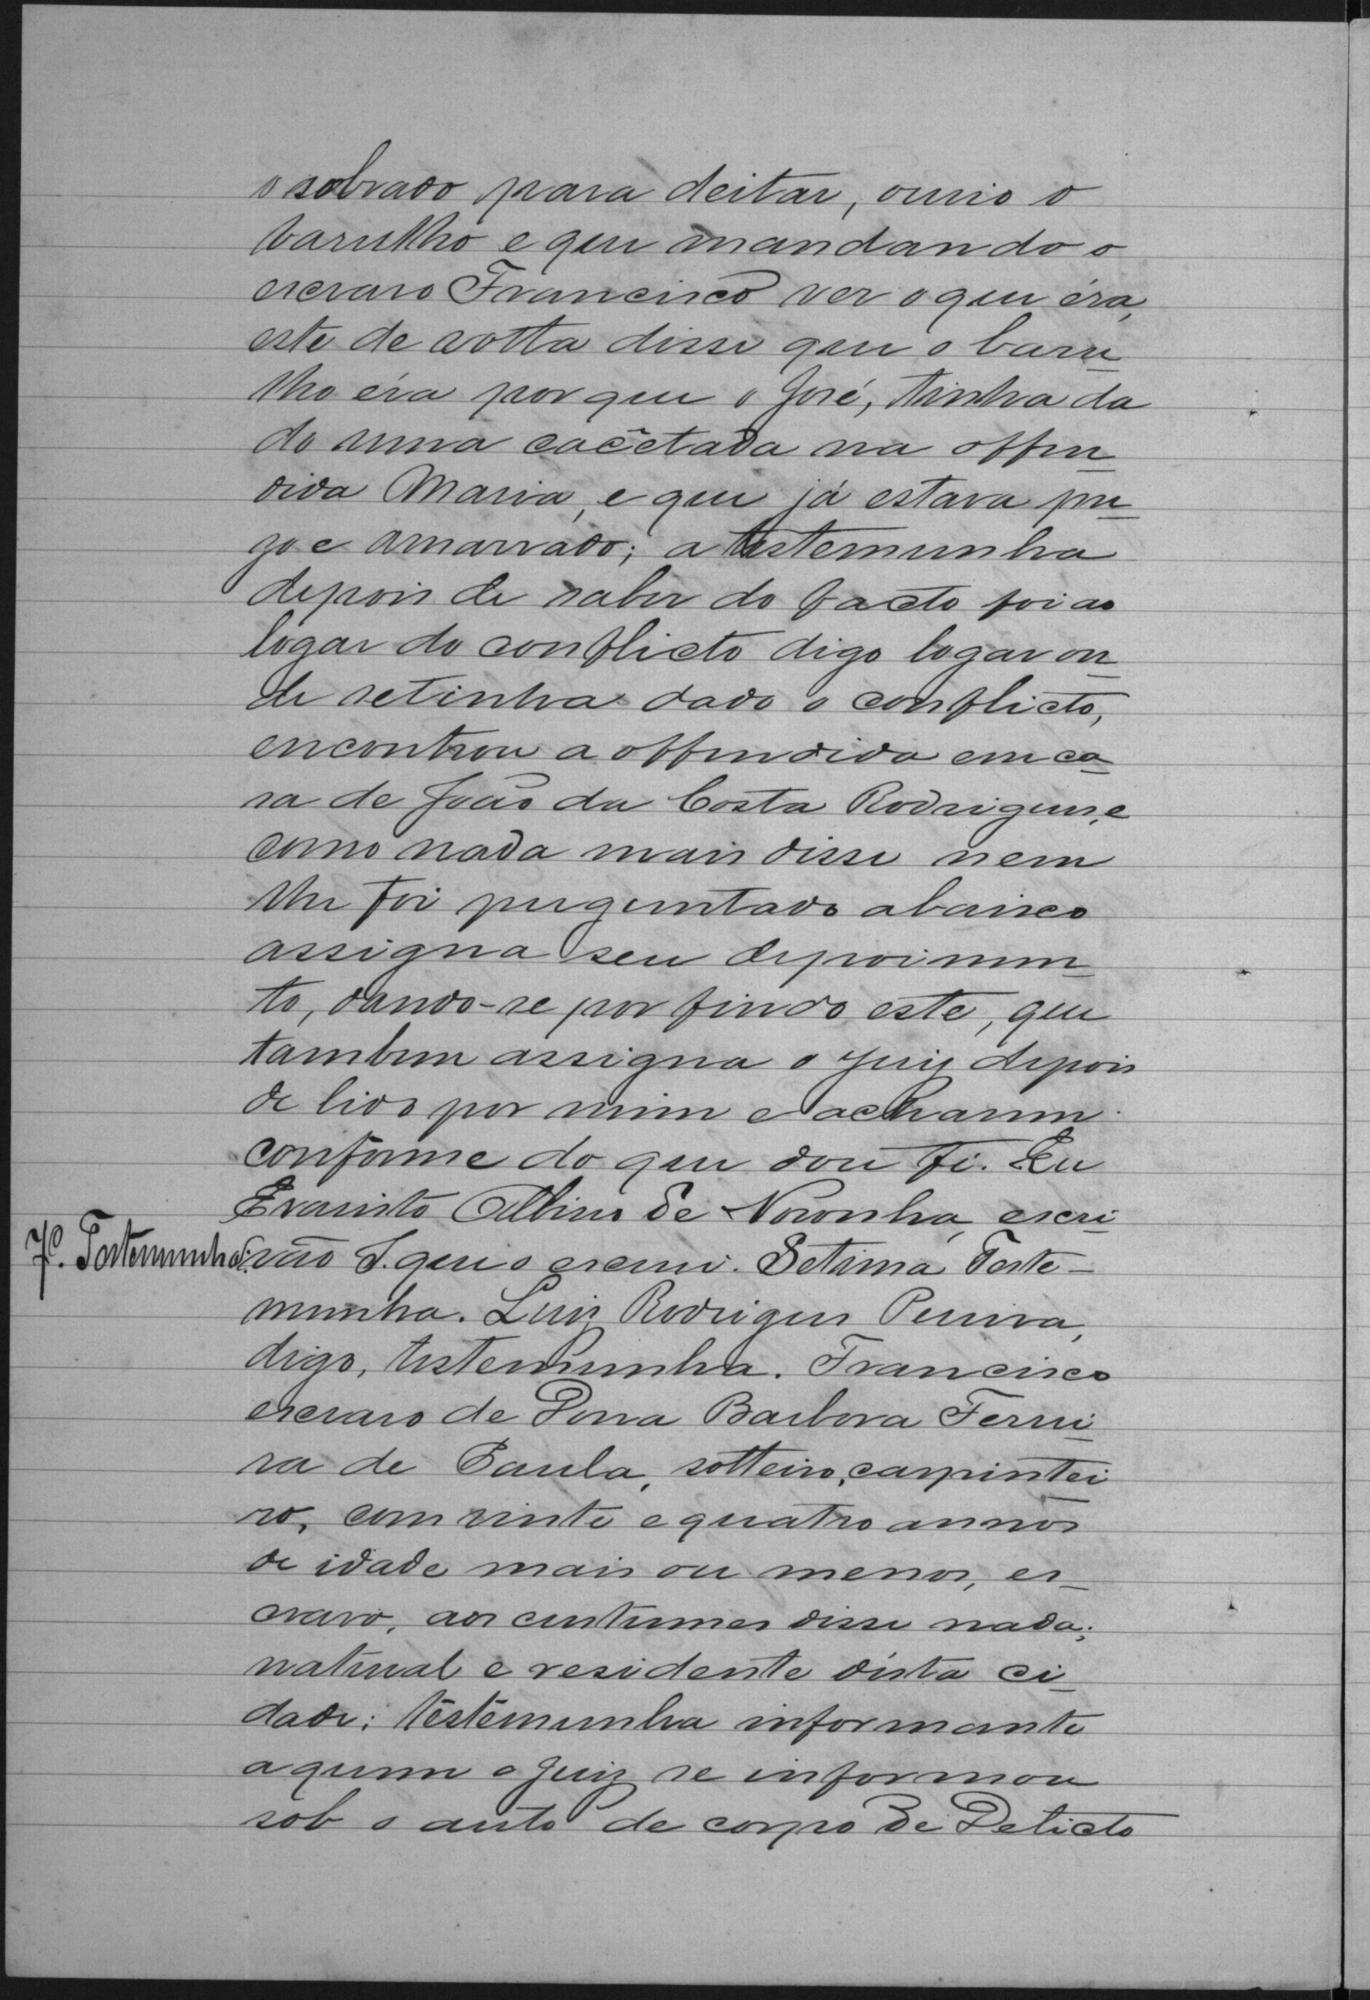 o sobrado para deitar, ouvio o
barulho e que mandando o
escravo Francisco ver o que éra,
este de volta disse que o baru
lho éra por que o José, tinha da
do uma cacêtada na offen
dida Maria, e que já estava pre
zo e amarrado; a testemunha
depois de saber do facto foi ao
logar do conflicto digo logar on
de se tinha dado o conflicto,
encontrou a offendida em ca
sa de João da Costa Rodrigues, e
como nada mais disse nem
lhe foi perguntado abaixo
assigna seu depoimen
to, dando-se por findo este, que
tambem assigna o Juiz depois
de lido por mim e acharem
conforme do que dou fé. Eu
Evaristo Albino de Noronha, escri
7ª. Testemunha.
vão I. que o escrevi. Setima Teste-
munha. Luiz Rodrigues Pereira,
digo, testemunha. Francisco
escravo de Dona Barbora Ferrei
ra de Paula, solteiro, carpintei
ro, com vinte e quatro annos
de idade mais ou menos, es
cravo, aos custumes disse nada;
natural e residente désta ci
dade; testemunha informante
a quem o Juiz se informou
sob o auto de corpo de Delicto